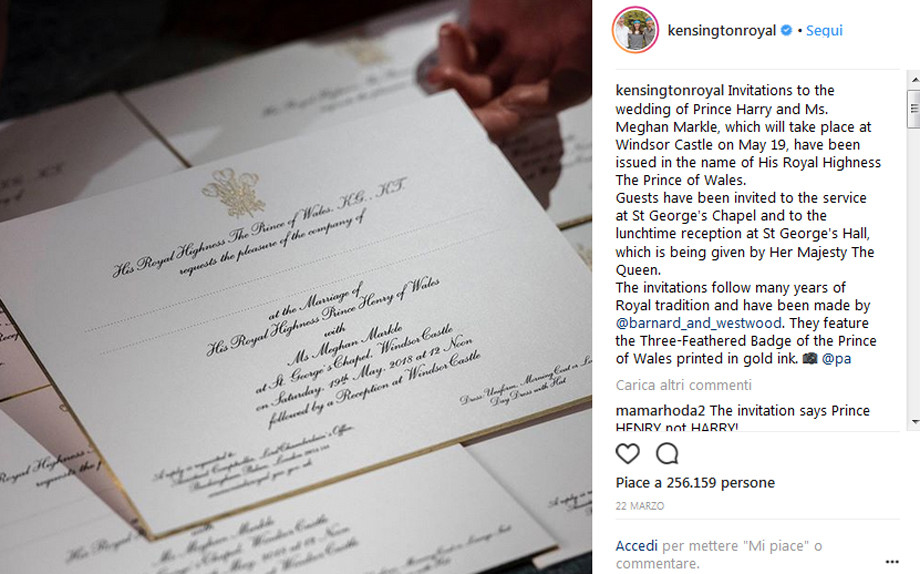 His Royal Highness The Prince of Wales, KG., KT.
requests the pleasure of the company of
at the Marriage of
His Royal Highness Prince Henry of Wales
with
Ms Meghan Markle
at St. George's Chapel, Windsor Castle
on Saturday, 19th May, 2018 at 12 Noon
followed by a Reception at Windsor Castle
A reply is requested to:
Buckingham Palace, London
Dress: Uniform, Morning Coat or Lo
Day Dress with Hat
Ms Meghan Markle
kensingtonroyal • Segui
kensingtonroyal Invitations to the
wedding of Prince Harry and Ms.
Meghan Markle, which will take place at
Windsor Castle on May 19, have been
issued in the name of His Royal Highness
The Prince of Wales.
Guests have been invited to the service
at St George's Chapel and to the
lunchtime reception at St George's Hall,
which is being given by Her Majesty The
Queen.
The invitations follow many years of
Royal tradition and have been made by
@barnard_and_westwood. They feature
the Three-Feathered Badge of the Prince
of Wales printed in gold ink. 📷 @pa
Carica altri commenti
mamarhoda2 The invitation says Prince
HENRY not HARRY!
Piace a 256.159 persone
22 MARZO
Accedi per mettere "Mi piace" o
commentare.